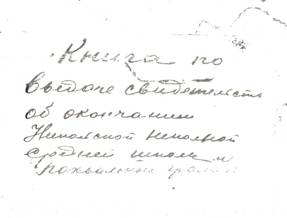 Книга по
выдаче свидетельств
об окончании
Никольской неполной
средней школы и
похвальных грамот